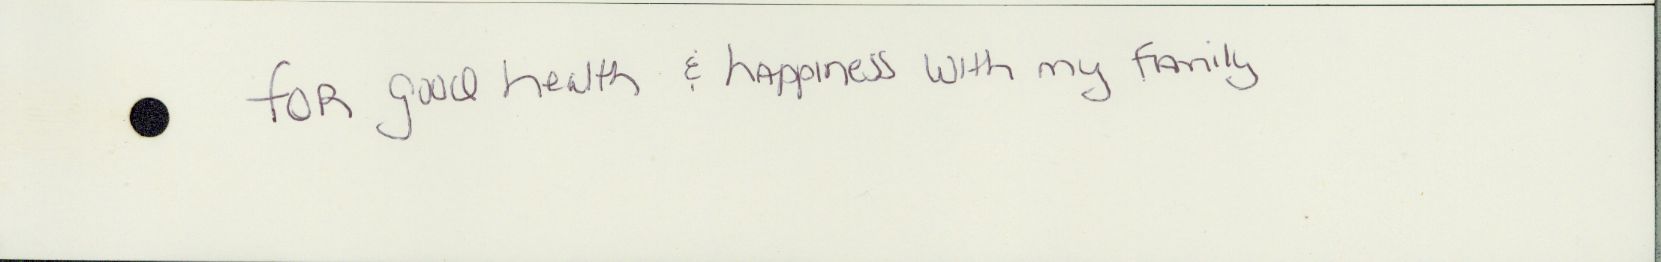 for good health & happiness with my family